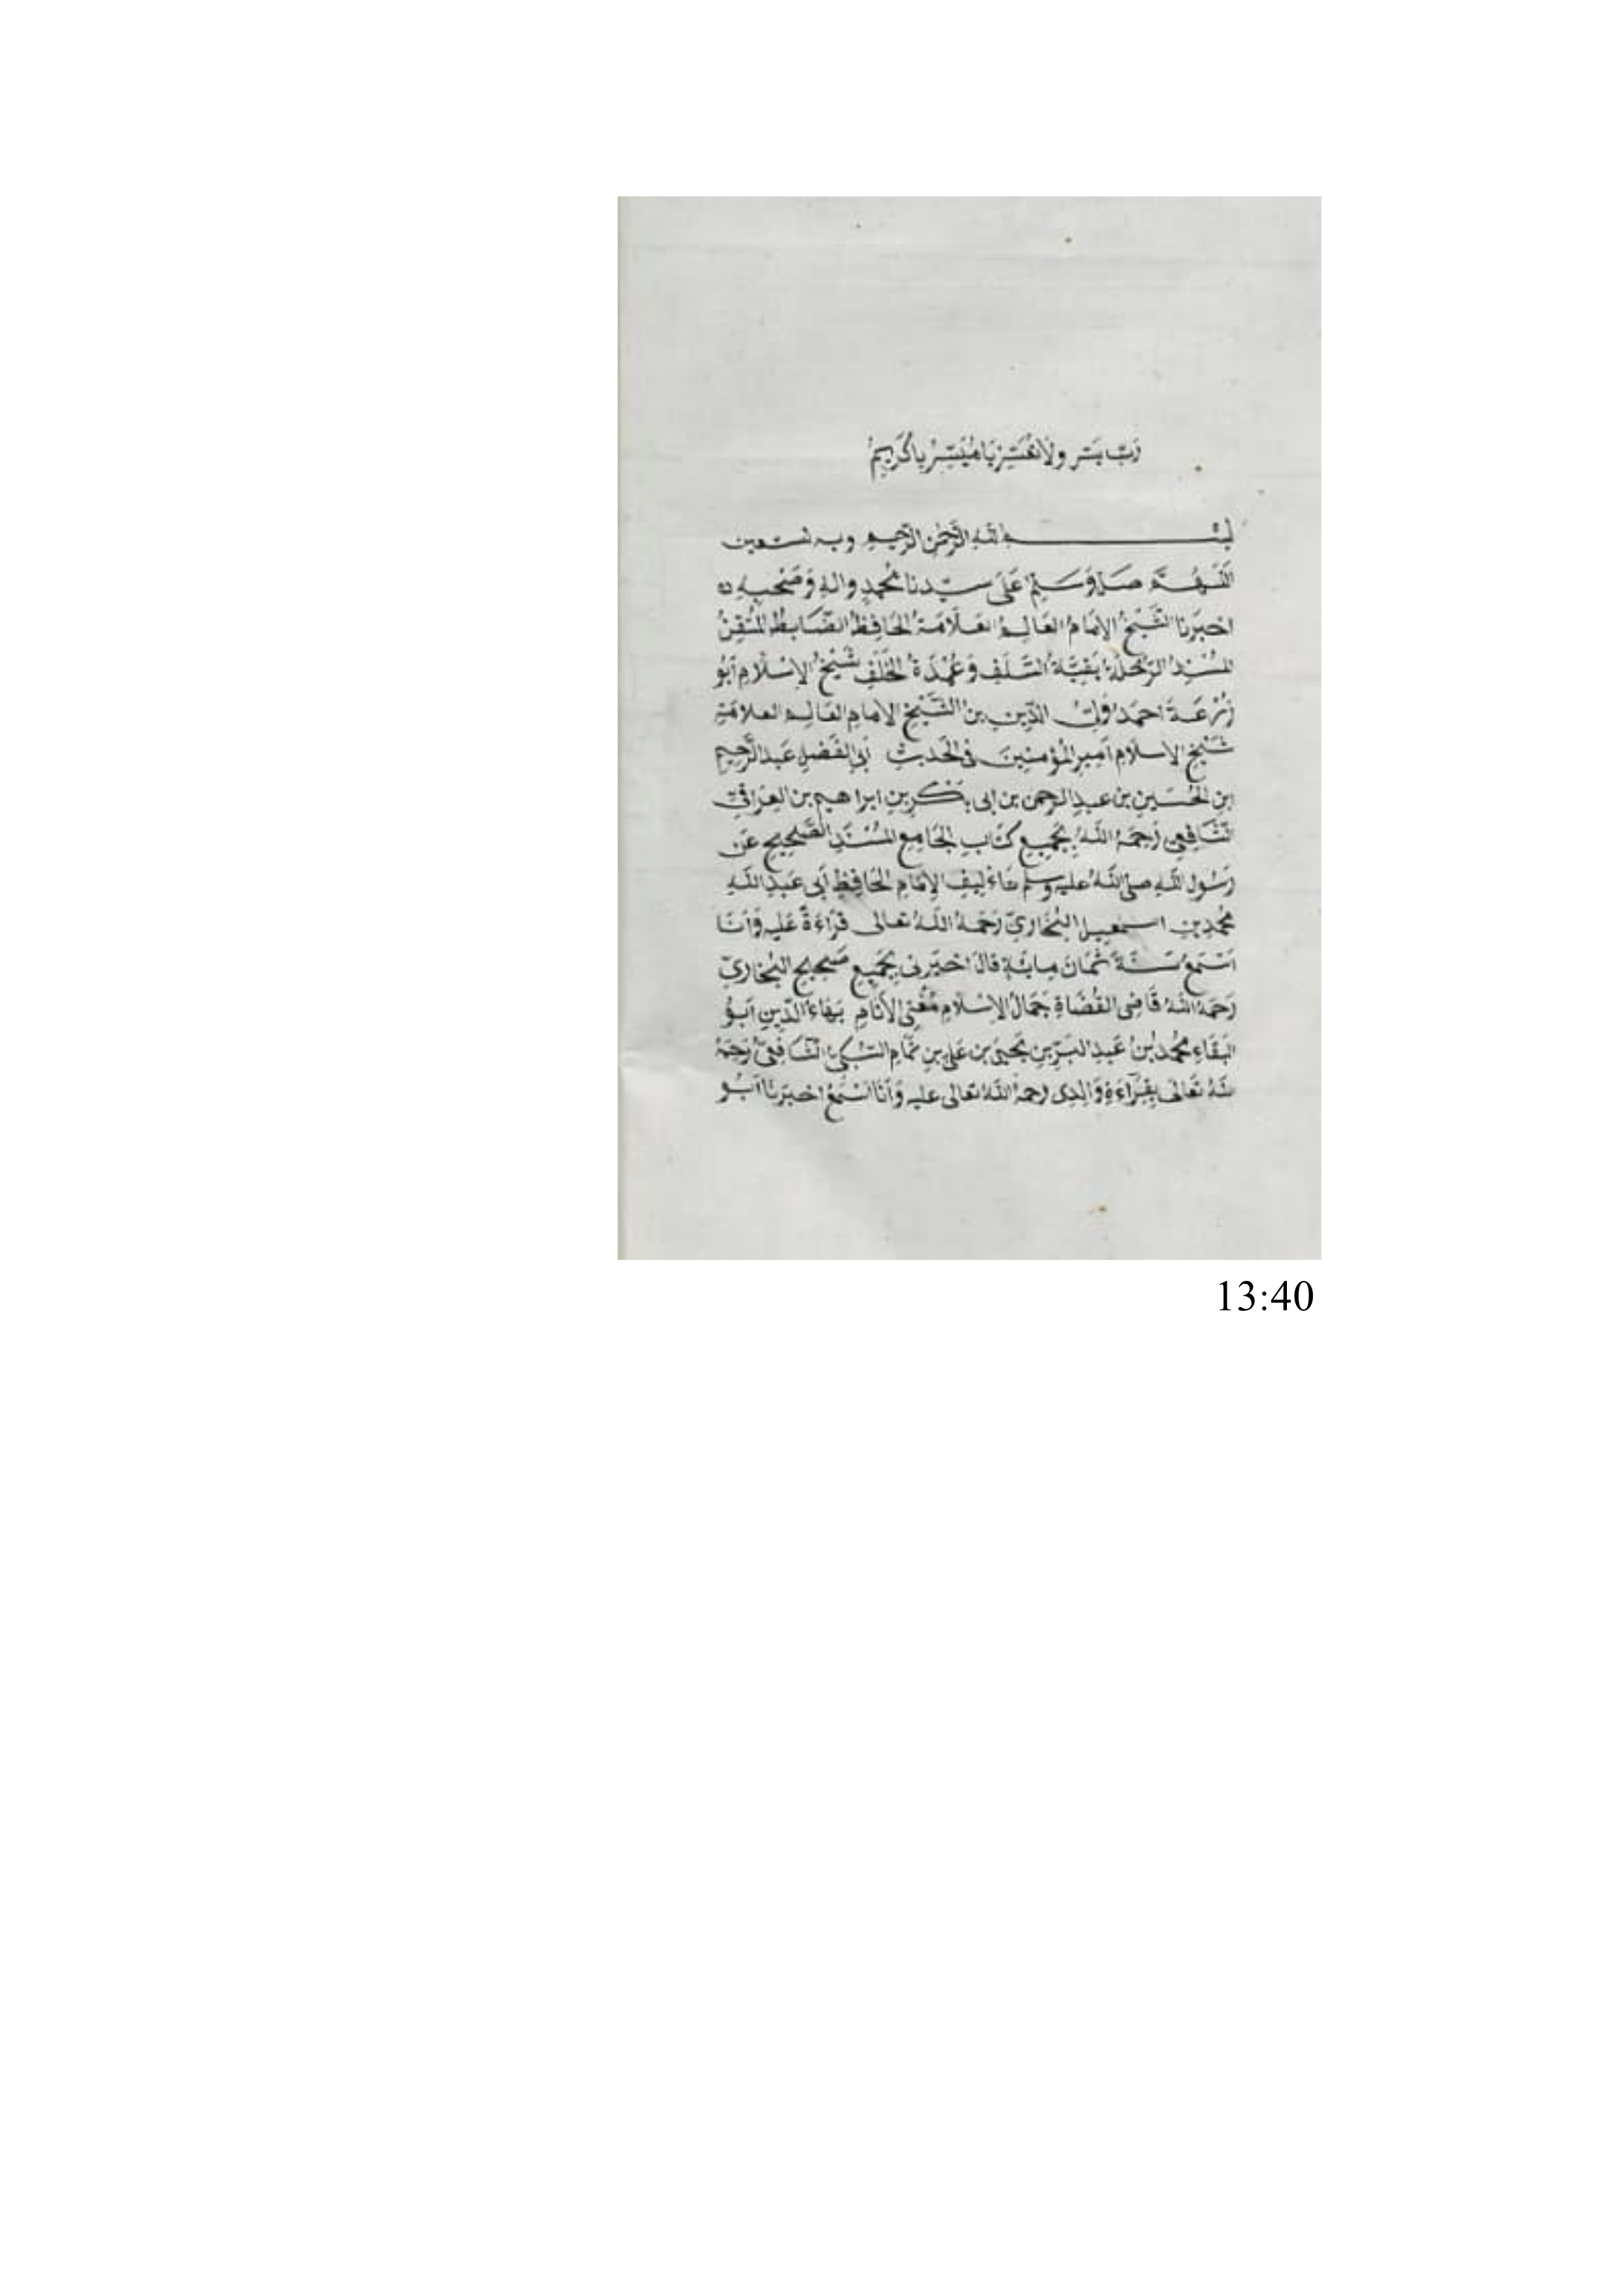 رَبِّ يَسِّر ولَا تُعَسِّر يَا مُيَسِّرُ يا كَرِيمُ
بسم الله الرَّحمٰن الرَّحيم وبه نستعين
اللَّهُمَّ صَلِّ وَسَلِّم عَلَى سيّدنا مُحمدٍ والهِ وَصَحْبِهِ
اخبَرَنا الشَّيخُ الإمَامُ العَالِمُ العَلَّامَةُ الحَافِظُ الضَّابطُ المُتقِنُ
المُسْنِدُ الرّحْلَةُ بَقِيَّةُ السَّلَفِ وَعُمْدَةُ الخَلَفِ شَيْخُ الإسْلَامِ أبُو
زُرْعَةَ احمَدُ وَلِيّ الدِّينِ بنُ الشَّيْخِ الإمَامِ العَالِمِ العلامَةِ
شَيْخِ الإسلَامِ أمِيرِ المُؤمِنِينَ في الحَدِيثِ أبي الفَضْلِ عَبد الرَّحِيمِ
ابنِ الحُسَينِ بن عبدِ الرحمن بن ابى بَكْرِ بنِ ابراهيم بن العِرَاقيّ
الشَّافِعِي رَحِمَهُ اللهُ بِجَمِيعِ كتَابِ الجَامِعِ المُسْنَدِ الصَّحِيحِ عَن
رَسُولِ اللهِ صلى اللهُ عليه وسلم تاءليفِ الإمَامِ الحَافِظِ أبى عَبدِ اللهِ
مُحمدِ بنِ اسمعيل البُخَارِيّ رَحمَهُ اللهُ تعالى قِرَاءَةً عَلَيهِ وَأنَا
أسْمَعُ سَنَةَ ثمَانَ مِايَةٍ قالَ اخبَرنى بِجَمِيعِ صَحِيحِ البُخارِيّ
رَحِمَهُ اللهُ قَاضِى القُضَاةِ جَمَالُ الإسْلَامِ مُفْتِى الأنَامِ بَهَاءُ الدِّينِ أبُو
البَقَاءِ مُحمدُ بنُ عَبدِ البَرِّ بنِ يَحيَى بن عَلىّ بنِ تمَّامِ السُّبْكِىُّ الشَّافِعِىُّ رَحِمَهُ
اللهُ تَعَالى بِقِرَآءَةِ وَالِدِى رحمهُ اللهُ تعالى عليه وَأنَا اسْمَعُ اخبَرَنا أبُو
13:40